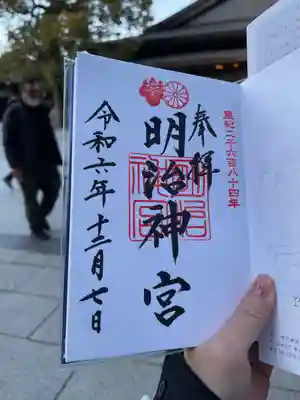 皇紀二千六百八十四年
奉拝
明治神宮
令和六年十二月七日